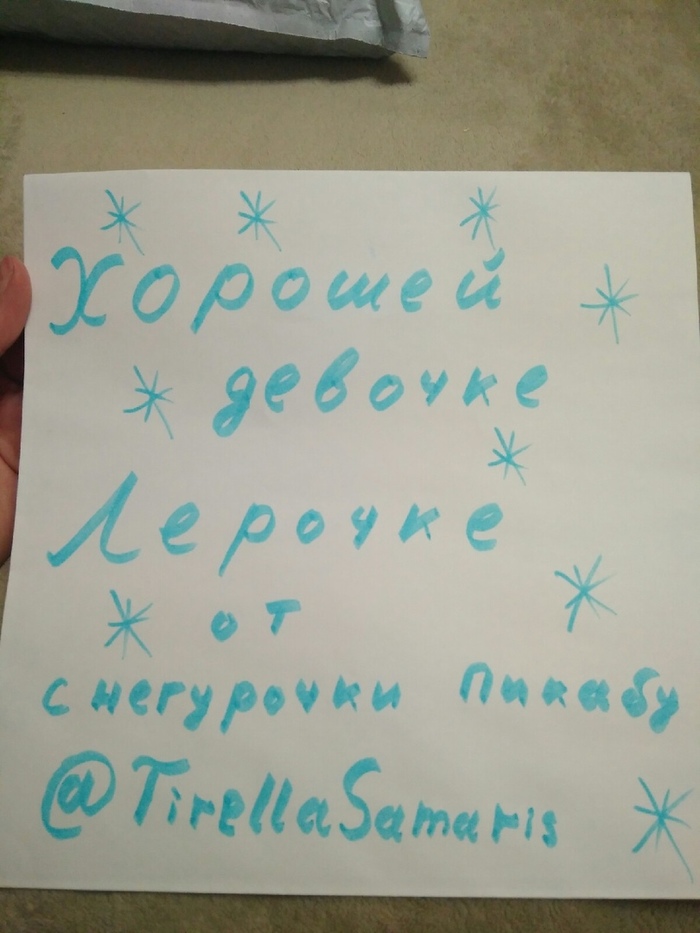 Хорошей
девочке
Лерочке
от
снегурочки Пикабу
@TirellaSamaris